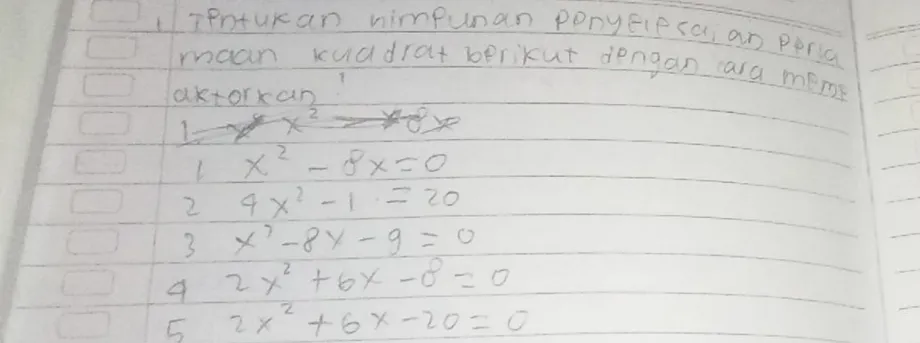 1. Tentukan himpunan penyelesaian persa
maan kuadrat berikut dengan cara memf
aktorkan!
1 x² - 8x = 0
2 4x² - 1 = 20
3 x² - 8x - 9 = 0
4 2x² + 6x - 8 = 0
5 2x² + 6x - 20 = 0